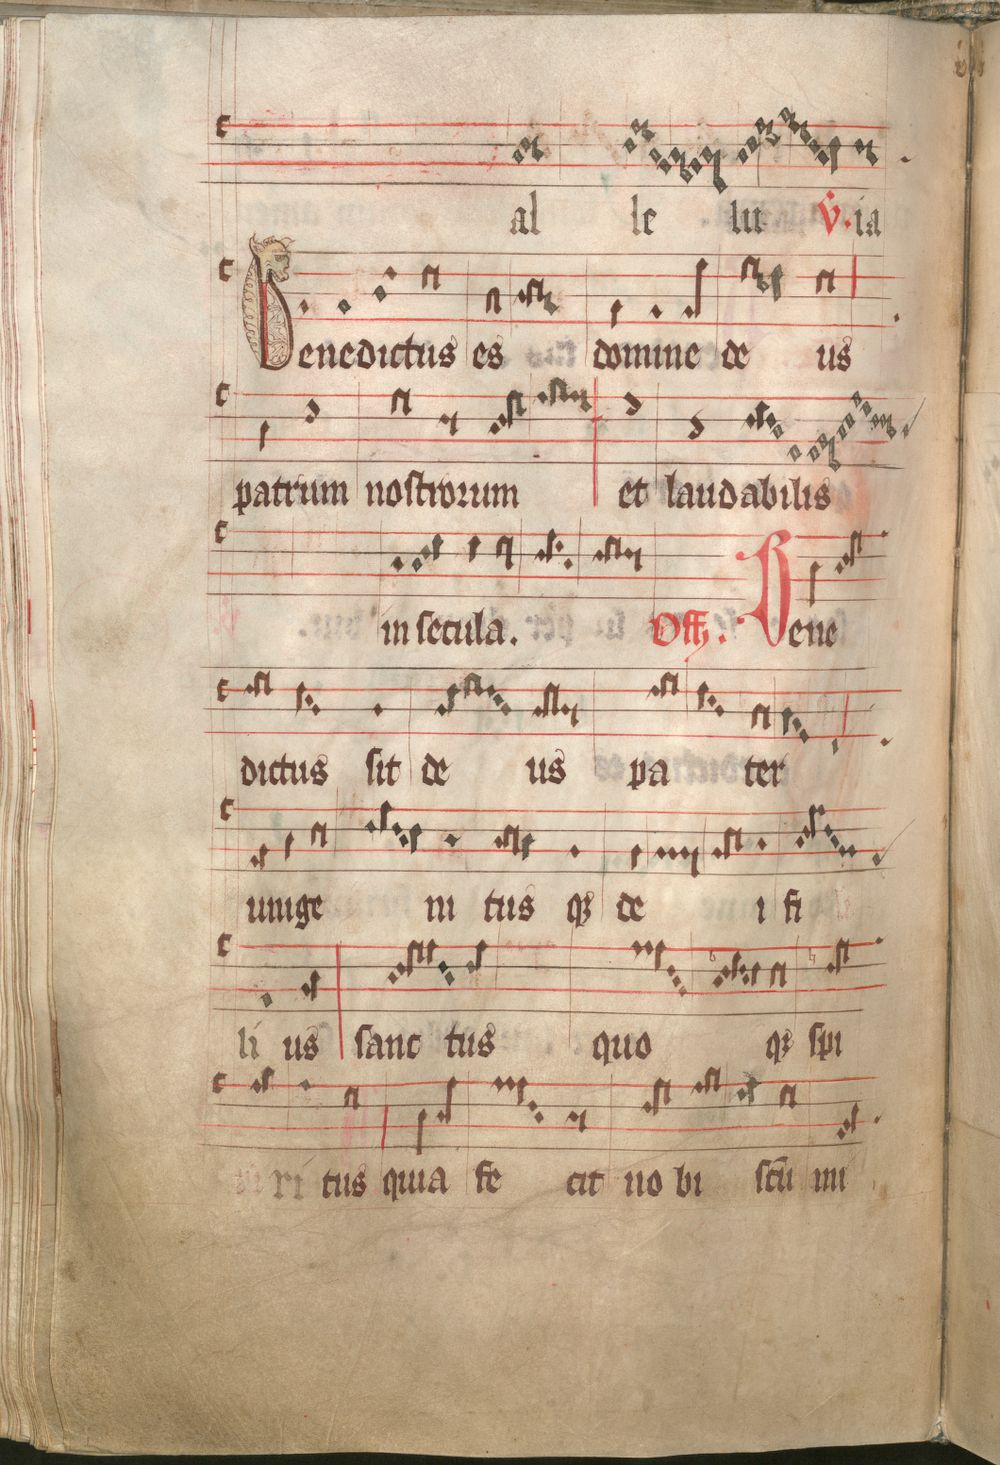 al le lu V. ia
Benedictus es domine de us
patrum nostrorum et laudabilis
in secula. Off. Bene
dictus sit de us pa ter
unige ni tus qꝫ de i fi
li us sanc tus quo qꝫ spi
ri tus quia fe cit no bi scū mi